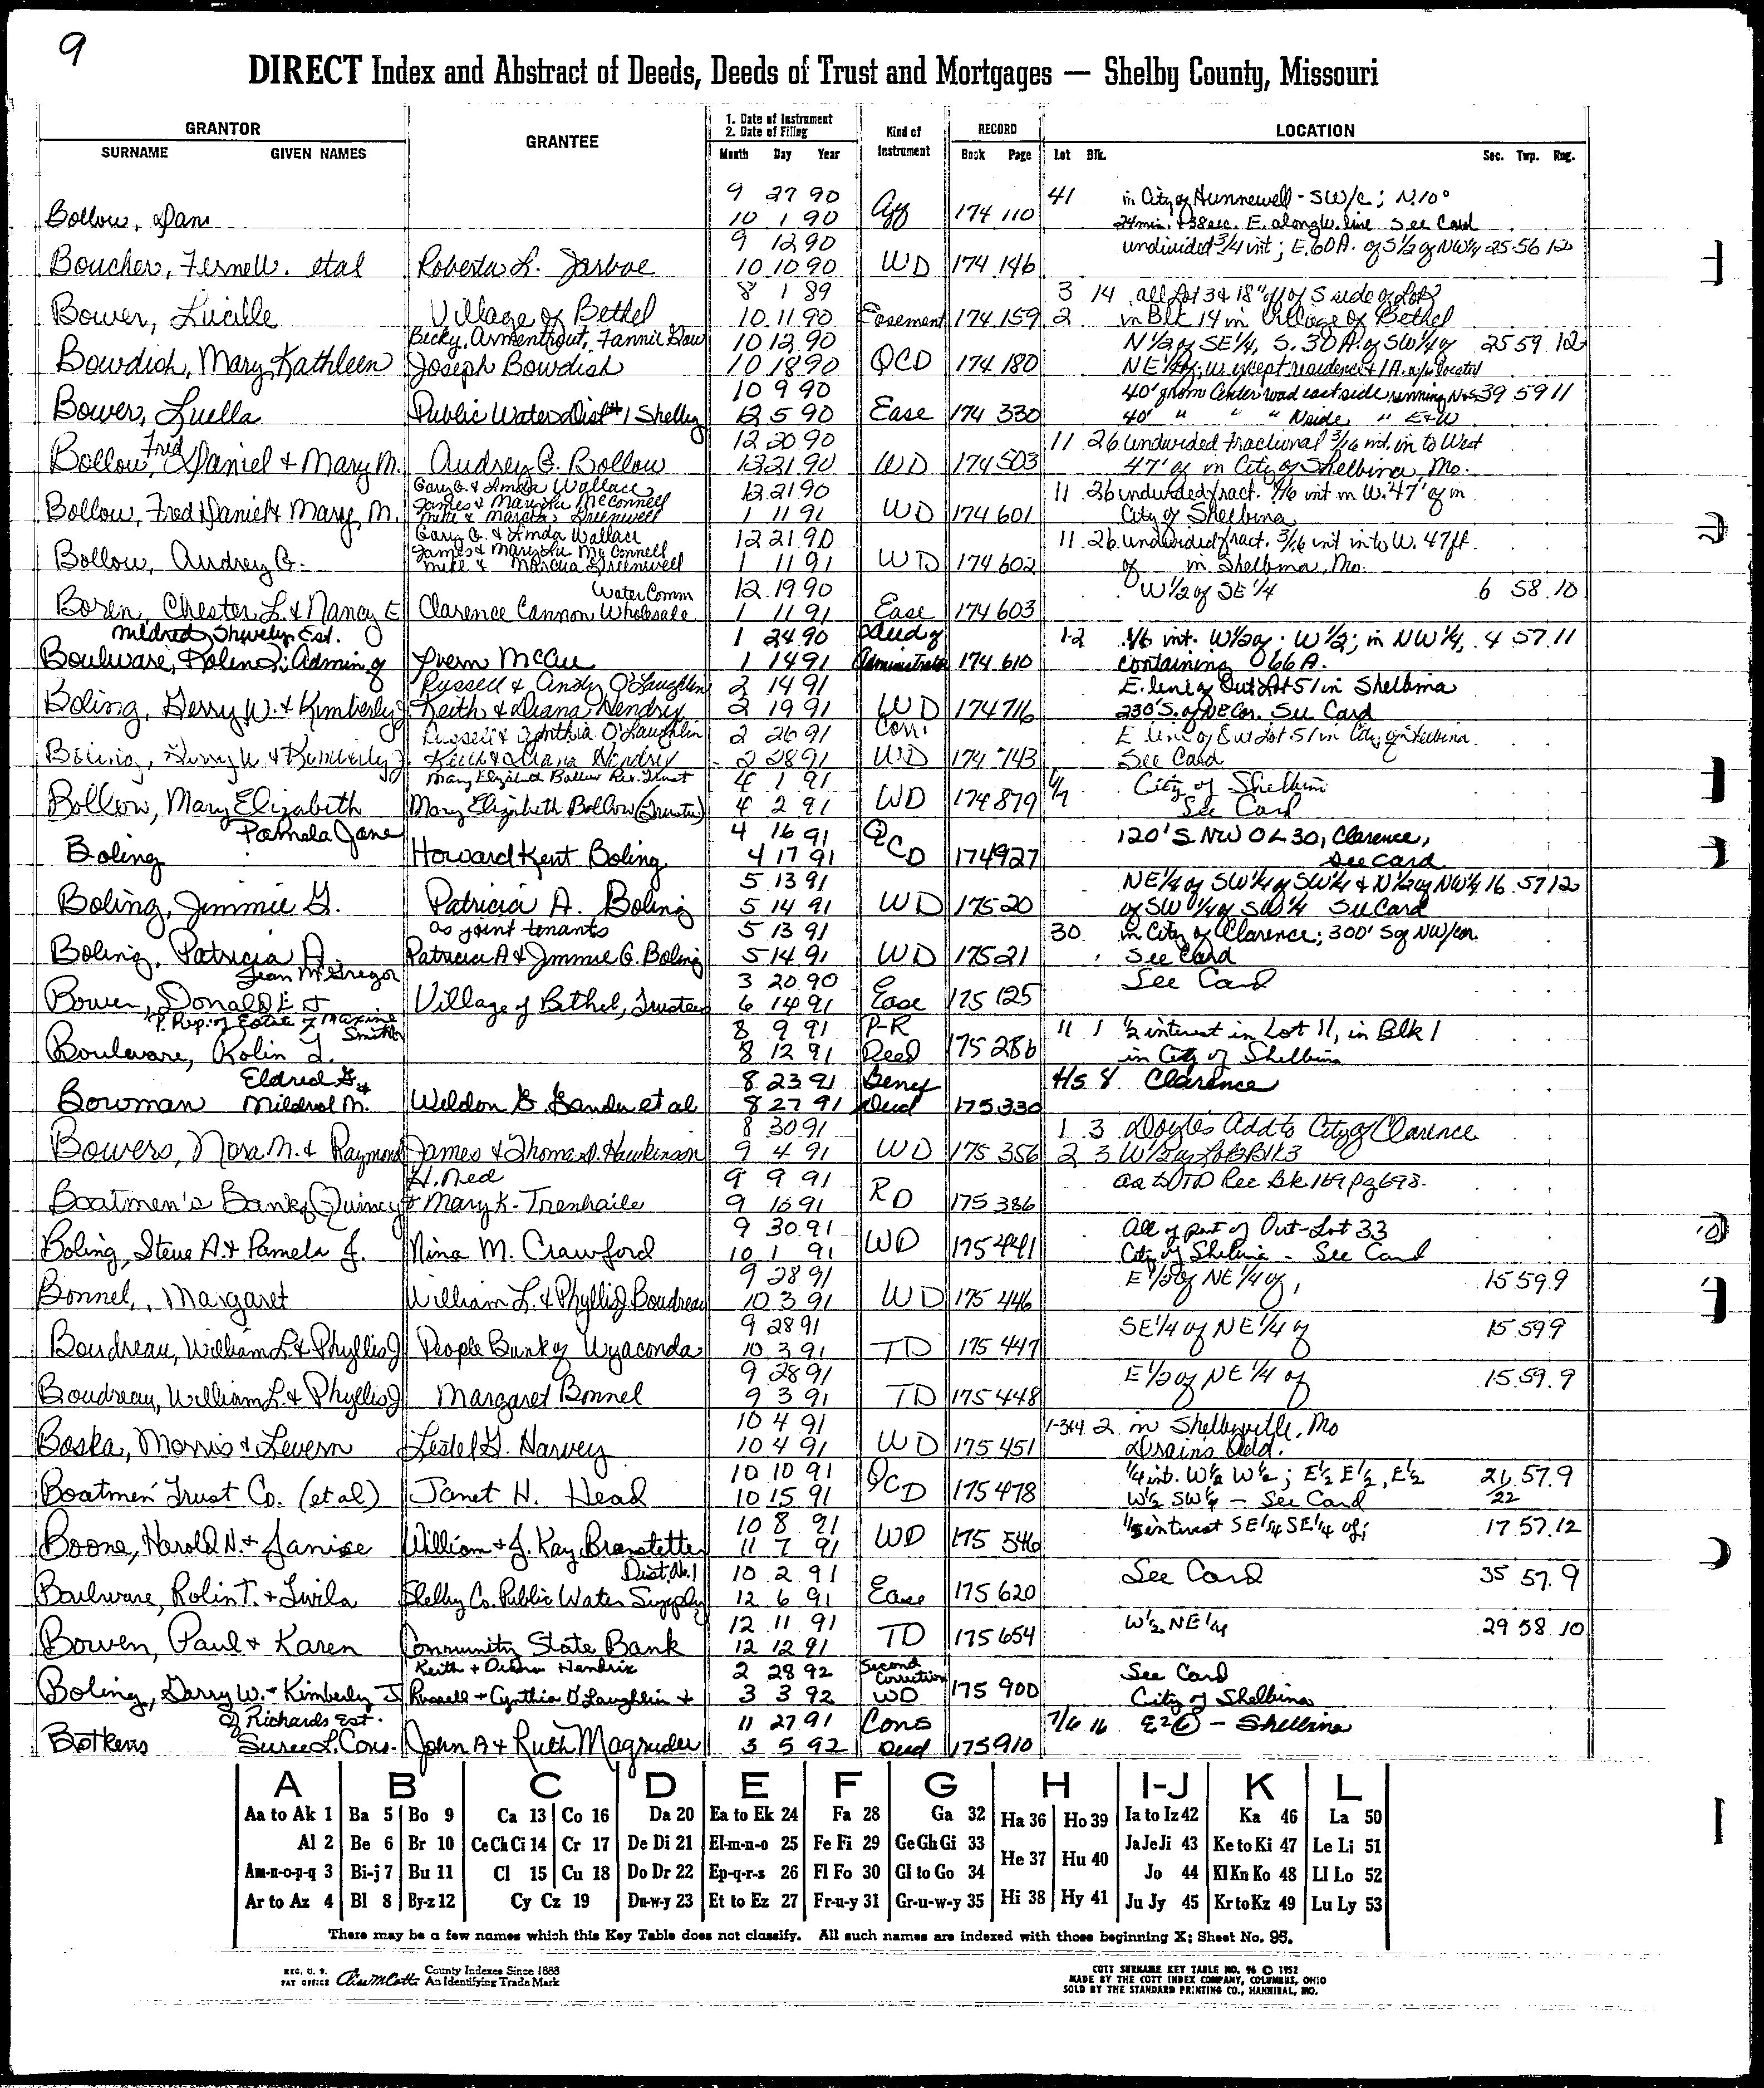 9
DIRECT Index and Abstract of Deeds, Deeds of Trust and Mortgages — Shelby County, Missouri
GRANTOR
SURNAME GIVEN NAMES
GRANTEE
1. Date of Instrument
2. Date of Filing
Month Day Year
Kind of Instrument
RECORD
Book Page
LOCATION
Lot Blk. Sec. Twp. Rng.
9 27 90 41 in City of Hunnewell - SW/c; N.10°
Bollow, Dan 10 1 90 Aff 174 110 24min. +38sec. E. along W. line See Card
9 12 90 undivided 3/4 int; E.60A. of S1/2 of NW1/4 25 56 12
Boucher, Fernell. etal Roberta L. Jarboe 10 10 90 WD 174 146
8 1 89 3 14 all Lot 3 & 18" off of S side of Lot 2
Bower, Lucille Village of Bethel 10 11 90 Easement 174 159 2 in Blk 14 in Village of Bethel
Becky Armentrout, Fannie 10 12 90 N1/2 of SE1/4, S. 30A. of SW1/4 of 25 59 12
Bowdish, Mary Kathleen Joseph Bowdish 10 18 90 QCD 174 180 NE1/4 of; except residence & 1A. located
10 9 90 40' from Center road east side running N&S 39 59 11
Bower, Luella Public Water Dist #1 Shelby 12 5 90 Ease 174 330 40' " " " N side, " E&W
Fred 12 20 90 11 26 undivided fractional 3/16 int. in to West
Bollow, Daniel & Mary M. Audrey G. Bollow 12 21 90 WD 174 503 47' of in City of Shelbina, Mo.
Gary G. & Linda Wallace 12 21 90 11 26 undivided fract. 1/16 int in W. 47' of in
James & Marylu McConnell
Bollow, Fred Daniel & Mary M. Mike & Marcia Greenwell 1 11 91 WD 174 601 City of Shelbina
Gary G. & Linda Wallace 12 21 90 11 26 undivided fract. 3/16 int into W. 47 ft.
James & Marylu McConnell
Bollow, Audrey G. Mike & Marcia Greenwell 1 11 91 WD 174 602 of in Shelbina, Mo.
Water Comm 12 19 90 W1/2 of SE1/4 6 58 10
Boren, Chester L. & Nancy E Clarence Cannon Wholesale 1 11 91 Ease 174 603
Mildred Shively Est. 1 24 90 Deed of 1-2 1/6 int. W1/2 of; W1/2; in NW1/4, 4 57 11
Boulware, Rolin T; Admin. of Yvern McCue 1 14 91 Administrator 174 610 containing 066A.
Russell & Cindy O'Laughlin 2 14 91 E. line of Out Lot 51 in Shelbina
Boling, Gerry W. & Kimberly J Keith & Diana Hendrix 2 19 91 WD 174 716 230'S. of NE Cor. See Card
Russell & Cynthia O'Laughlin 2 26 91 Corr. E line of Out Lot 51 in City of Shelbina
Boling, Gerry W & Kimberly J Keith & Diana Hendrix 2 28 91 WD 174 743 See Card
Mary Elizabeth Bollow Rev. Trust 4 1 91 City of Shelbina
Bollow, Mary Elizabeth Mary Elizabeth Bollow (Trustee) 4 2 91 WD 174 879 See Card
Pamela Jane 4 16 91 Q 120'S NW OL 30, Clarence,
Boling Howard Kent Boling 4 17 91 CD 174 927 See Card
5 13 91 NE1/4 of SW1/4 of SW1/4 & N1/2 of NW1/4 16 57 12
Boling, Jimmie G. Patricia A. Boling 5 14 91 WD 175 20 of SW1/4 of SW1/4 See Card
as joint tenants 5 13 91 30 in City of Clarence; 300' S of NW/cor.
Boling, Patricia A. Patricia A & Jimmie G. Boling 5 14 91 WD 175 21 See Card
Jean McGregor 3 20 90 See Card
Bower, Donald E & Village of Bethel, Trustees 6 14 91 Ease 175 125
P. Rep. of Estate of Maxine Smith 8 9 91 P-R 11 1 1/2 interest in Lot 11, in Blk 1
Boulware, Rolin T. 8 12 91 Deed 175 286 in City of Shelbina
Eldred G. & 8 23 91 Benef 4&5 8 Clarence
Bowman Mildred M. Weldon G. Gander et al 8 27 91 Deed 175 330
8 30 91 1 3 Doyles Add to City of Clarence
Bowers, Nora N. & Raymond James & Thomas D. Hawkinson 9 4 91 WD 175 356 2 3 W1/2 of Lot 2 Blk 3
H. Ned 9 9 91 as to DTD Rec Bk 169 pg 698.
Boatmen's Bank of Quincy & Mary K. Trenhaile 9 16 91 RD 175 386
9 30 91 All of part of Out-Lot 33
Boling, Steve A. & Pamela J. Nina M. Crawford 10 1 91 WD 175 441 City of Shelbina - See Card
9 28 91 E1/2 of NE1/4 of, 15 59 9
Bonnel, Margaret William L. & Phyllis J Boudreau 10 3 91 WD 175 446
9 28 91 SE1/4 of NE1/4 of 15 59 9
Boudreau, William L & Phyllis J People Bank of Wyaconda 10 3 91 TD 175 447
9 28 91 E1/2 of NE1/4 of 15 59 9
Boudreau, William L. & Phyllis J Margaret Bonnel 9 3 91 TD 175 448
10 4 91 1-3&4 2 in Shelbyville, Mo
Boska, Morris & Levern Lestel G. Harvey 10 4 91 WD 175 451 Drains Add.
10 10 91 1/4 int. W1/2 W1/2; E1/2 E1/2, E1/2 26 57 9
Boatmen Trust Co. (et al) Janet H. Head 10 15 91 QCD 175 478 W1/2 SW1/4 - See Card 22
10 8 91 1/5 interest SE1/4 SE1/4 of; 17 57 12
Boone, Harold N. & Janice William & J. Kay Branstetter 11 7 91 WD 175 546
Dist. No. 1 10 2 91 See Card 35 57 9
Boulware, Rolin T. & Twila Shelby Co. Public Water Supply 12 6 91 Ease 175 620
12 11 91 W1/2 NE1/4 29 58 10
Bowen, Paul & Karen Community State Bank 12 12 91 TD 175 654
Keith & Diana Hendrix 2 28 92 Second Correction See Card
Boling, Garry W. & Kimberly J Russell & Cynthia O'Laughlin & 3 3 92 WD 175 900 City of Shelbina
of Richards Est. 11 27 91 Cons 7/6 16 E2 6 - Shelbina
Botkens Susee L. Cons. John A & Ruth Magruder 3 5 92 Deed 175 910
A B C D E F G H I-J K L
Aa to Ak 1 Ba 5 Bo 9 Ca 13 Co 16 Da 20 Ea to Ek 24 Fa 28 Ga 32 Ha 36 Ho 39 Ia to Iz 42 Ka 46 La 50
Al 2 Be 6 Br 10 Ce Ch Ci 14 Cr 17 De Di 21 El-m-n-o 25 Fe Fi 29 Ge Gh Gi 33 He 37 Hu 40 Ja Je Ji 43 Ke to Ki 47 Le Li 51
Am-n-o-p-q 3 Bi-j 7 Bu 11 Cl 15 Cu 18 Do Dr 22 Ep-q-r-s 26 Fl Fo 30 Gl to Go 34 Jo 44 Kl Kn Ko 48 Ll Lo 52
Ar to Az 4 Bl 8 By-z 12 Cy Cz 19 Du-w-y 23 Et to Ez 27 Fr-u-y 31 Gr-u-w-y 35 Hi 38 Hy 41 Ju Jy 45 Kr to Kz 49 Lu Ly 53
There may be a few names which this Key Table does not classify. All such names are indexed with those beginning X; Sheet No. 95.
REG. U. S. PAT OFFICE County Indexes Since 1888 An Identifying Trade Mark
COTT SURNAME KEY TABLE NO. 96 © 1952
MADE BY THE COTT INDEX COMPANY, COLUMBUS, OHIO
SOLD BY THE STANDARD PRINTING CO., HANNIBAL, MO.